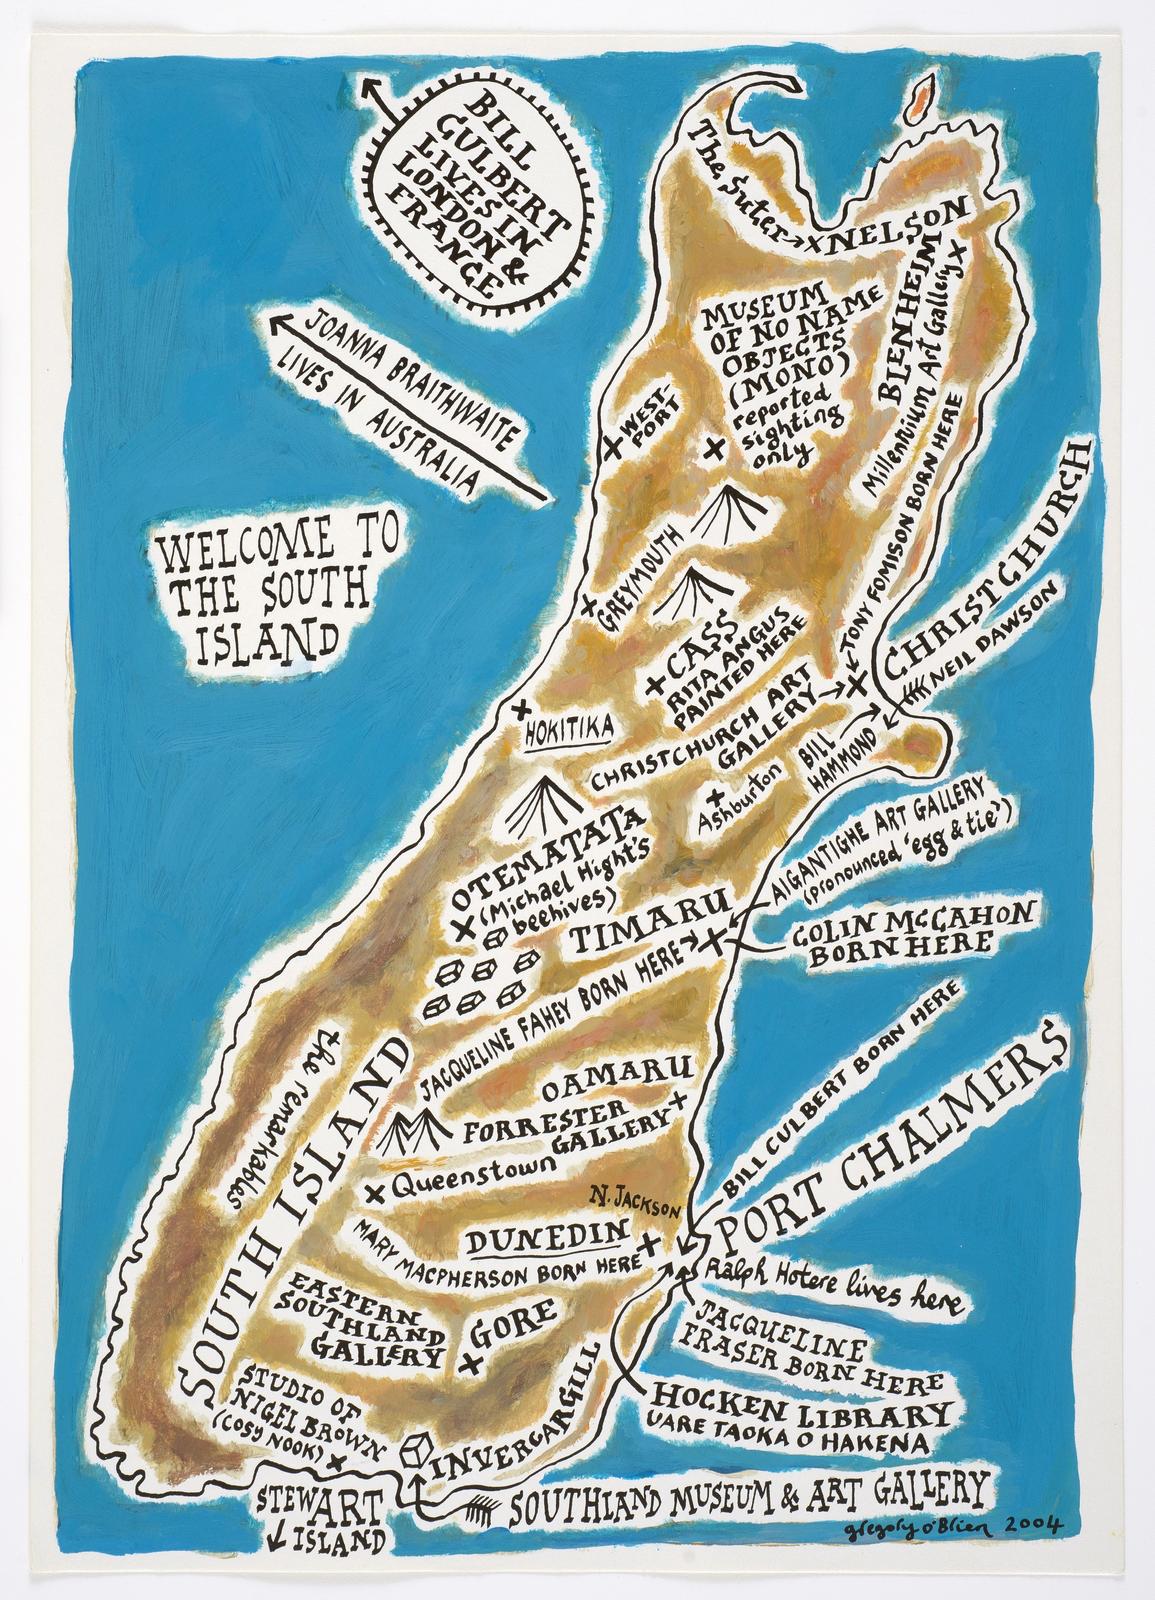 BILL
CULBERT
LIVES IN
LONDON &
FRANCE
JOANNA BRAITHWAITE
LIVES IN AUSTRALIA
WELCOME TO
THE SOUTH
ISLAND
The Suter
NELSON
BLENHEIM
Millennium Art Gallery
MUSEUM
OF NO NAME
OBJECTS
(MONO)
reported
sighting
only
WEST-
PORT
TONY FOMISON BORN HERE
CHRISTCHURCH
NEIL DAWSON
GREYMOUTH
CASS
RITA ANGUS
PAINTED HERE
HOKITIKA
CHRISTCHURCH ART
GALLERY
BILL
HAMMOND
Ashburton
AIGANTIGHE ART GALLERY
(pronounced 'egg & tie')
OTEMATATA
(Michael Hight's
beehives)
TIMARU
COLIN McCAHON
BORN HERE
JACQUELINE FAHEY BORN HERE
the remarkables
SOUTH ISLAND
OAMARU
FORRESTER
GALLERY
Queenstown
BILL CULBERT BORN HERE
PORT CHALMERS
N. JACKSON
DUNEDIN
MARY MACPHERSON BORN HERE
Ralph Hotere lives here
JACQUELINE
FRASER BORN HERE
EASTERN
SOUTHLAND
GALLERY
GORE
HOCKEN LIBRARY
UARE TAOKA O HAKENA
STUDIO OF
NIGEL BROWN
(COSY NOOK)
INVERCARGILL
STEWART
ISLAND
SOUTHLAND MUSEUM & ART GALLERY
gregory o'Brien 2004